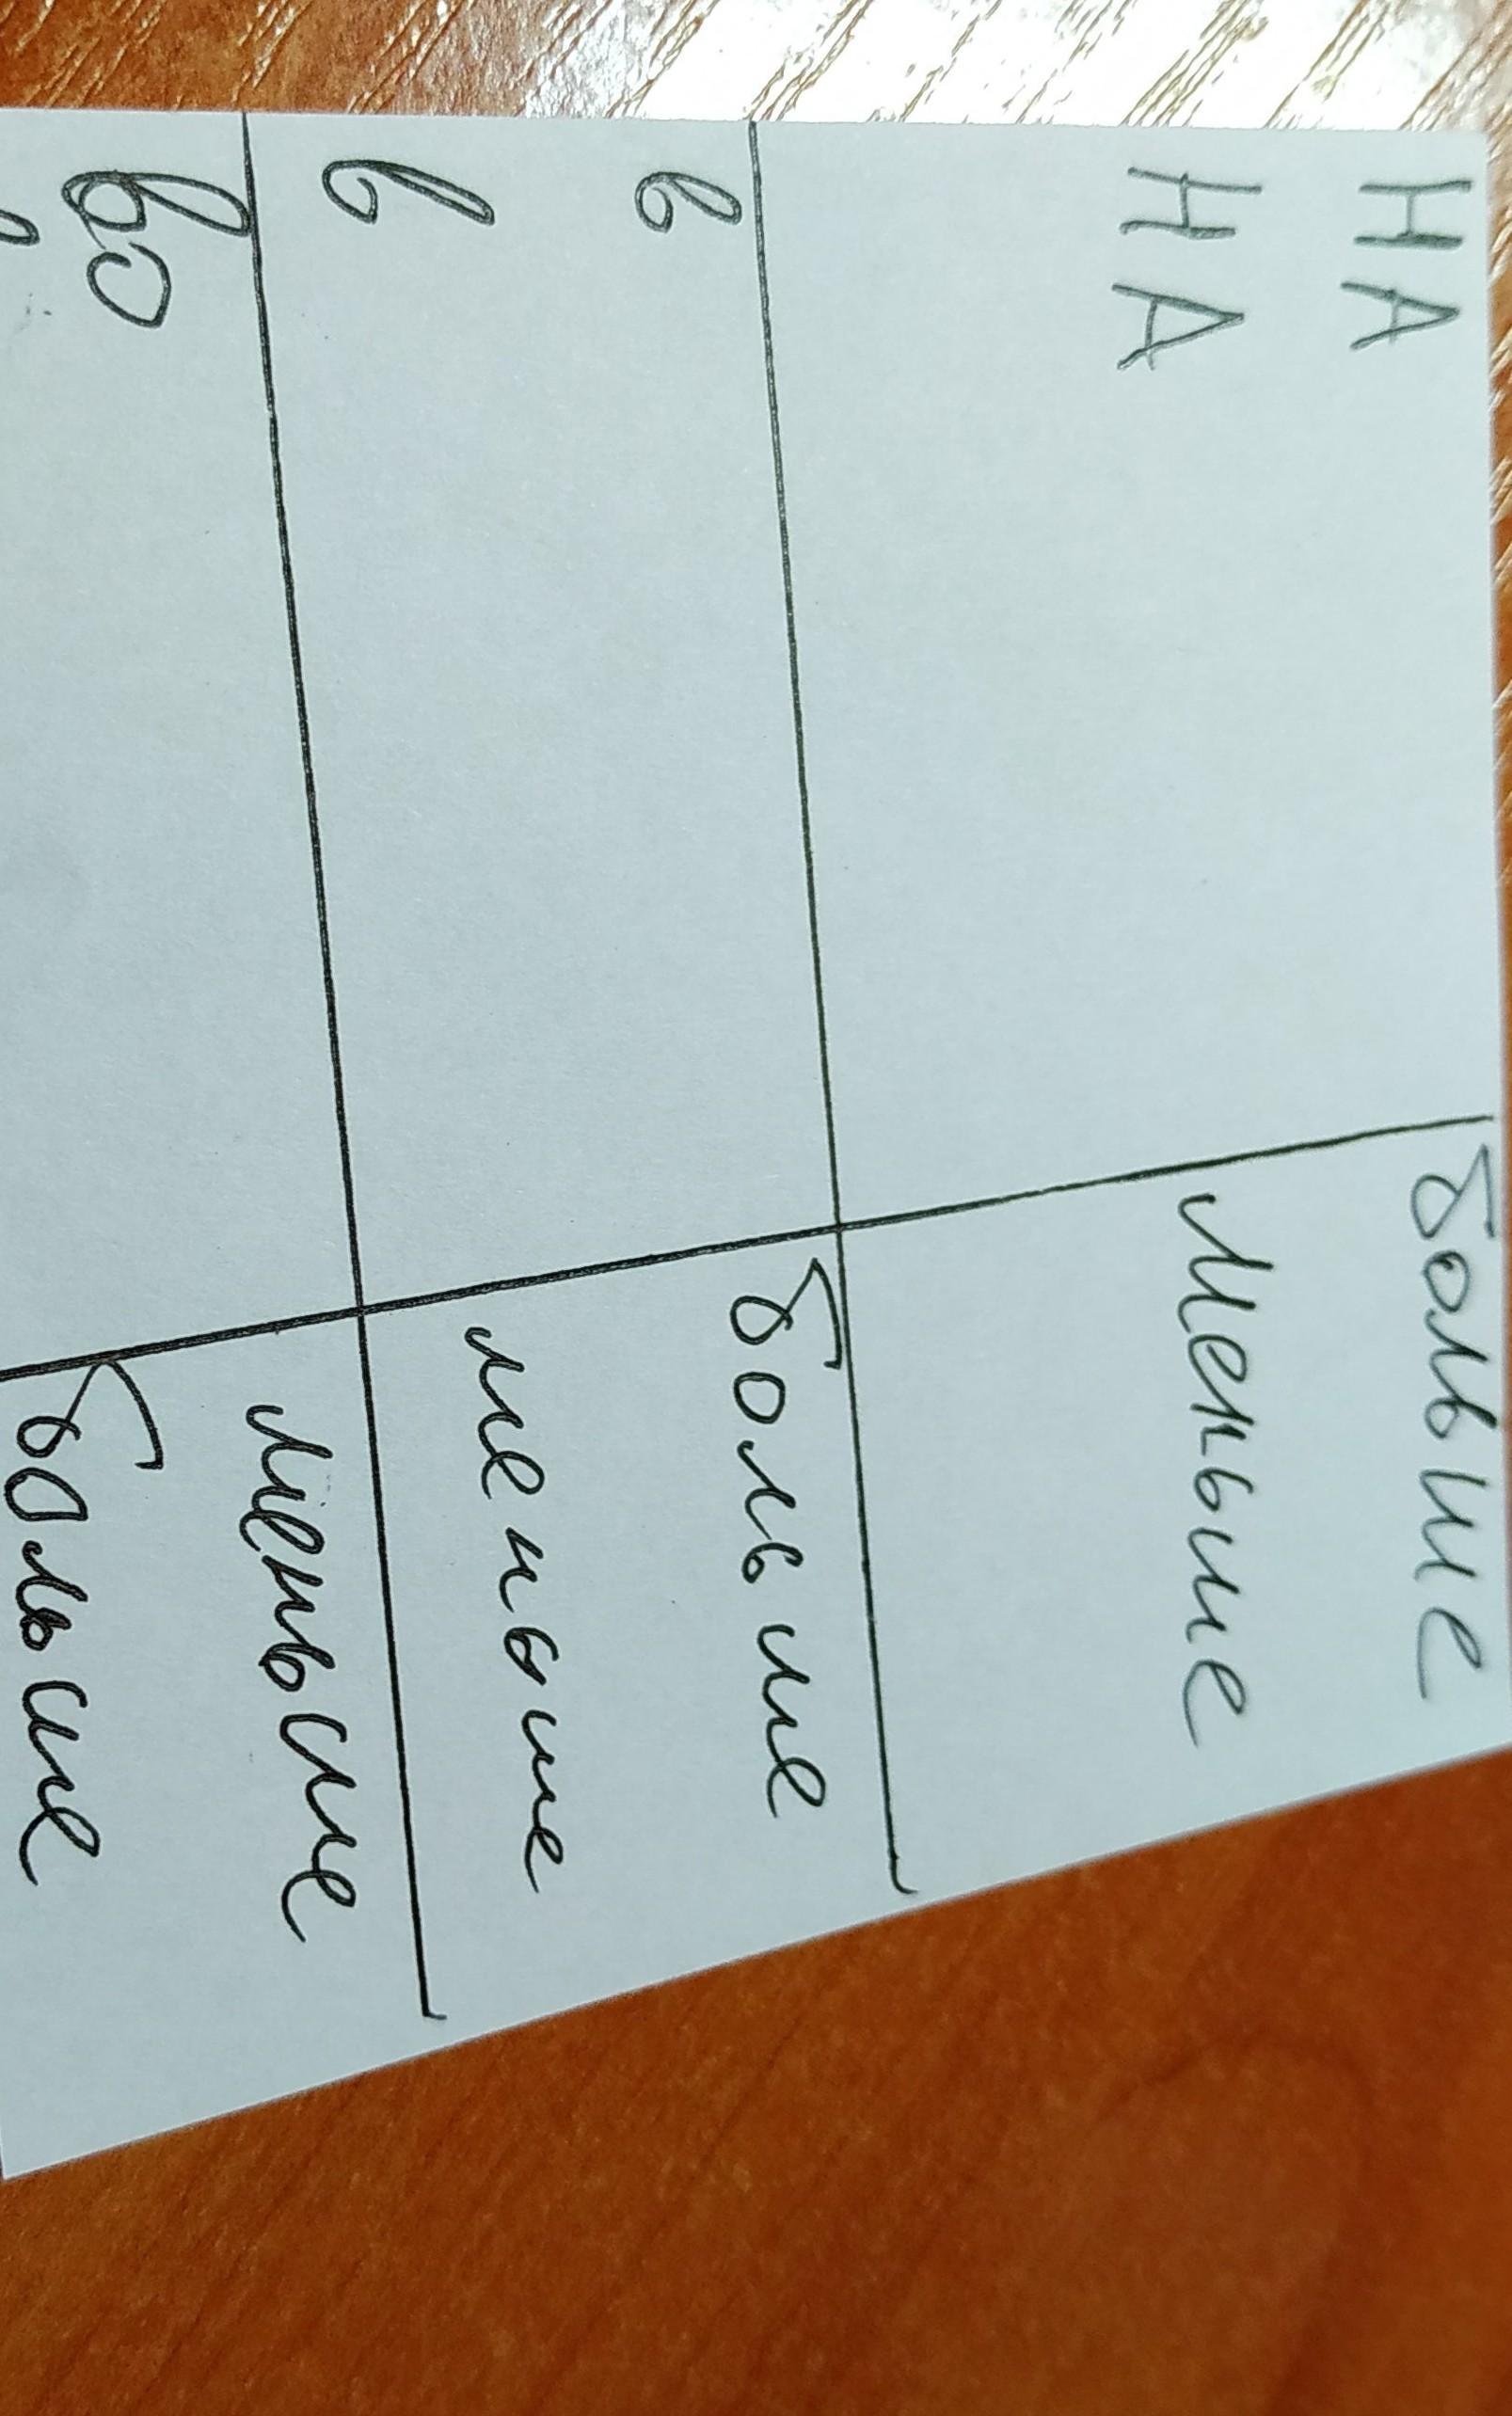 НА больше
НА меньше
в больше
в меньше
во меньше
больше